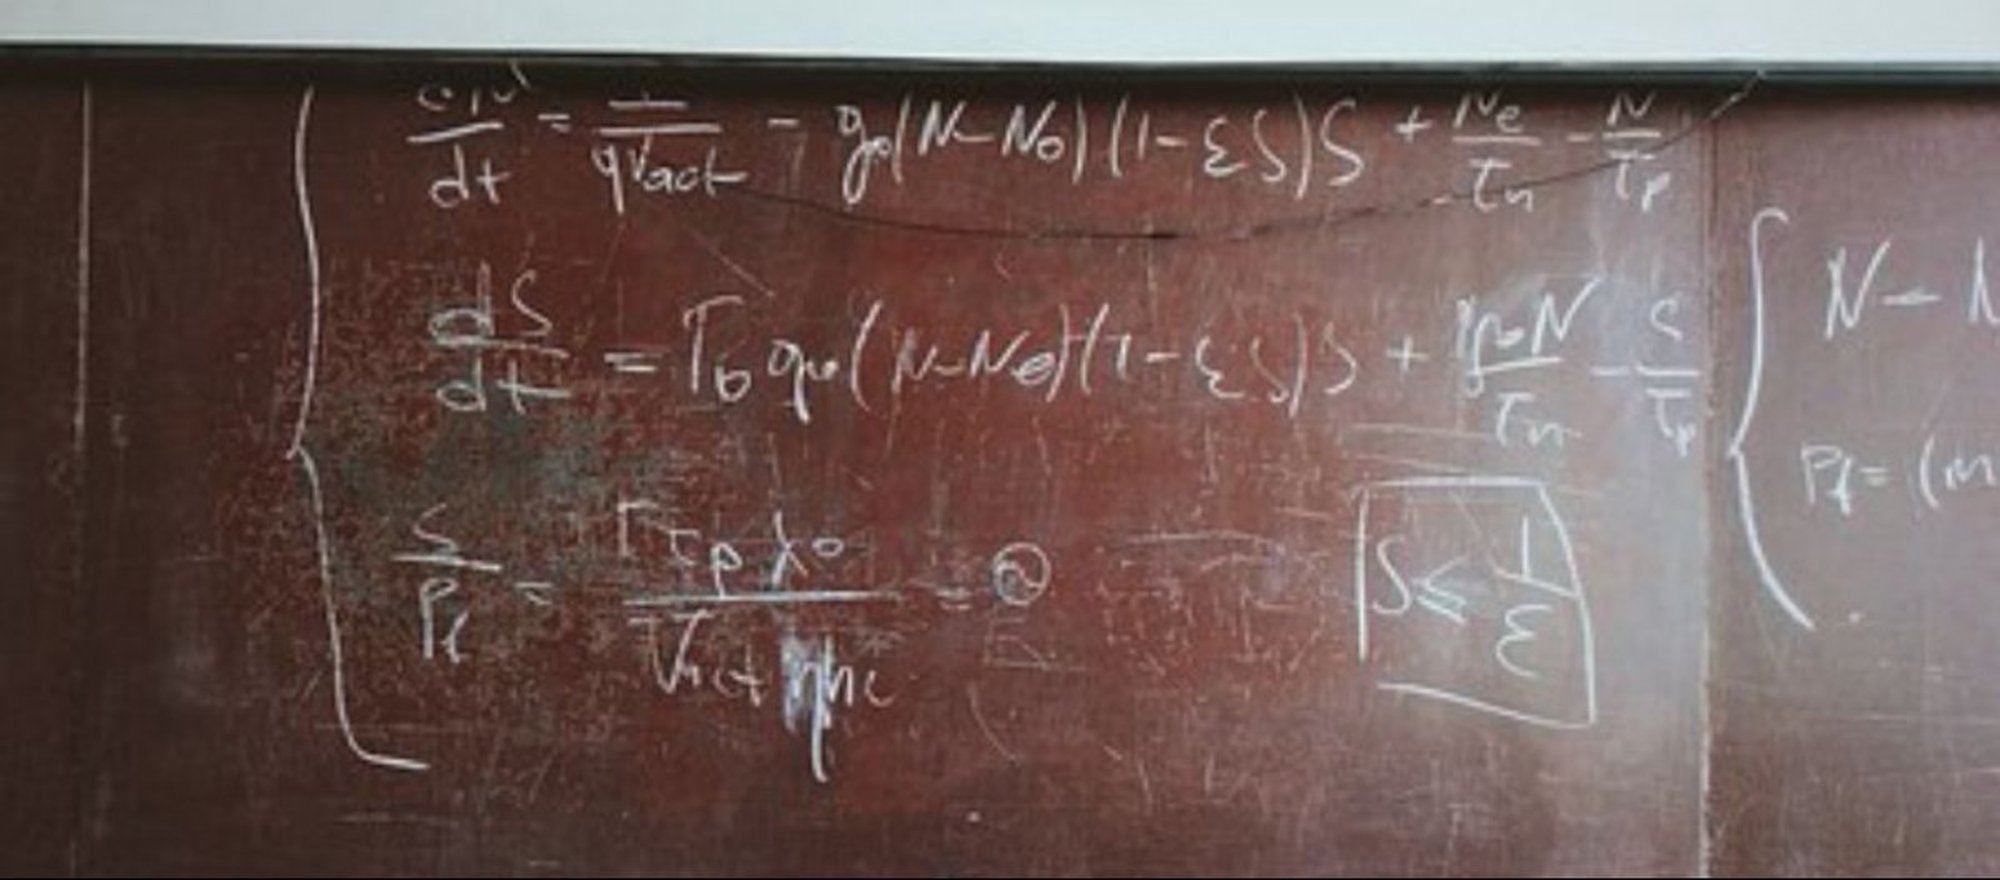 dN/dt = I/(qVact) - g₀(N-N₀)(1-εS)S + Ne/τn - N/τp
dS/dt = Γ₀g₀(N-N₀)(1-εS)S + N/τn - S/τp
S/Pf = Γτpλ₀/(Vact ηhc) =
S ≤ 1/ε
N -
Pf = (m